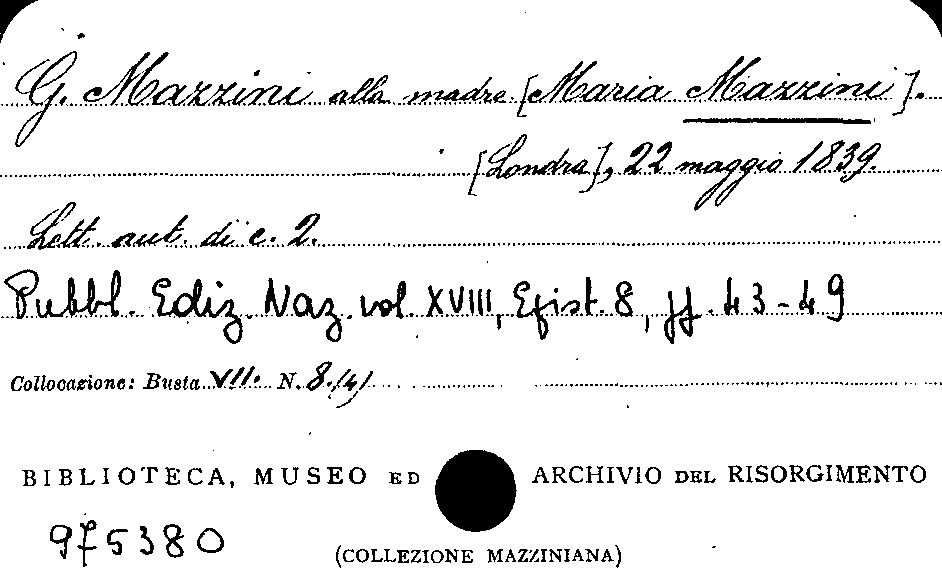 G. Mazzini alla madre [Maria Mazzini].
[Londra], 22 maggio 1839.
Lett. aut. di c. 2.
Pubbl. Ediz. Naz. vol. XVIII, Epist. 8, pp. 43-49
Collocazione: Busta VII. N. 8./4/
BIBLIOTECA, MUSEO ED ARCHIVIO DEL RISORGIMENTO
975380
(COLLEZIONE MAZZINIANA)